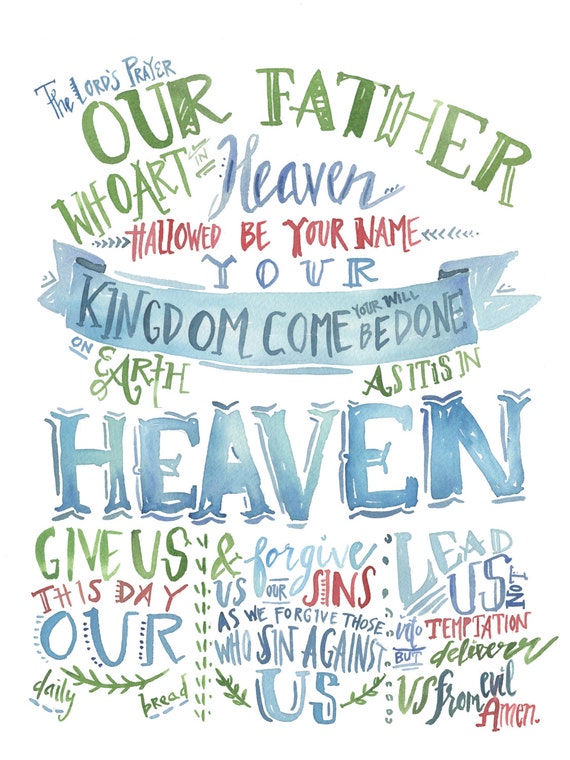 The Lord's Prayer
OUR FATHER
WHO ART IN Heaven
HALLOWED BE YOUR NAME
YOUR
KINGDOM COME YOUR WILL BE DONE
ON EARTH AS IT IS IN
HEAVEN
GIVE US
THIS DAY
OUR
daily bread
& forgive
US OUR SINS
AS WE FORGIVE THOSE
WHO SIN AGAINST
US
LEAD
US NOT
into TEMPTATION
BUT deliver
US from evil
Amen.